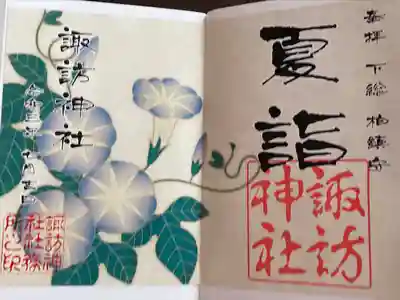 奉拝 下総 柏鎮守
夏詣
諏訪
神社
諏訪神社
七月吉日
諏訪神
社社務
所之印